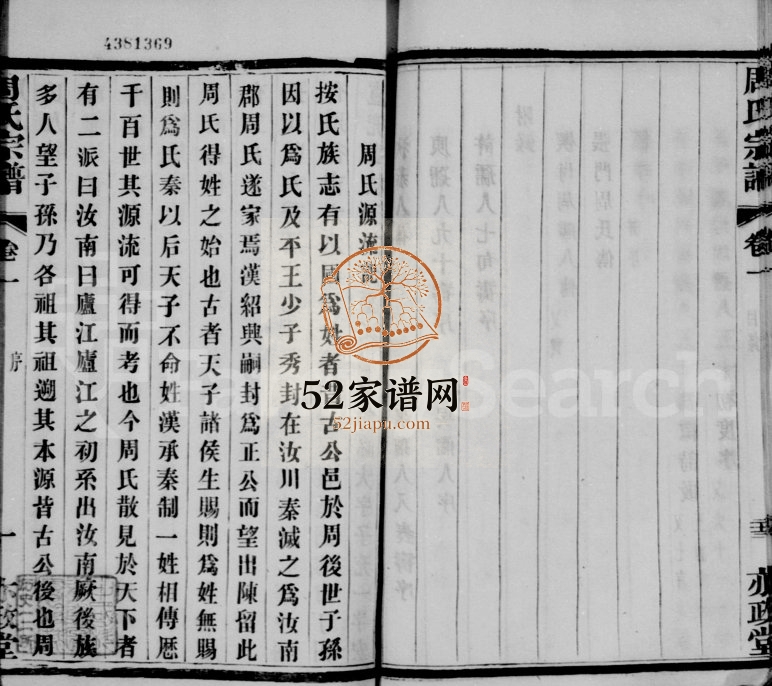 4381369
周氏宗譜
卷一
亦政堂
周氏源流
按氏族志有以周爲姓者古公邑於周後世子孫
因以爲氏及平王少子秀封在汝川秦滅之爲汝南
郡周氏遂家焉漢紹興嗣封爲正公而望出陳留此
周氏得姓之始也古者天子諸侯生賜則爲姓無賜
則爲氏秦以后天子不命姓漢承秦制一姓相傳歷
千百世其源流可得而考也今周氏散見於天下者
有二派曰汝南曰廬江廬江之初系出汝南厥後族
多人望子孫乃各祖其祖遡其本源皆古公後也周
周氏宗譜
卷一
序
一
亦政堂
52家谱网
52jiapu.com
Search